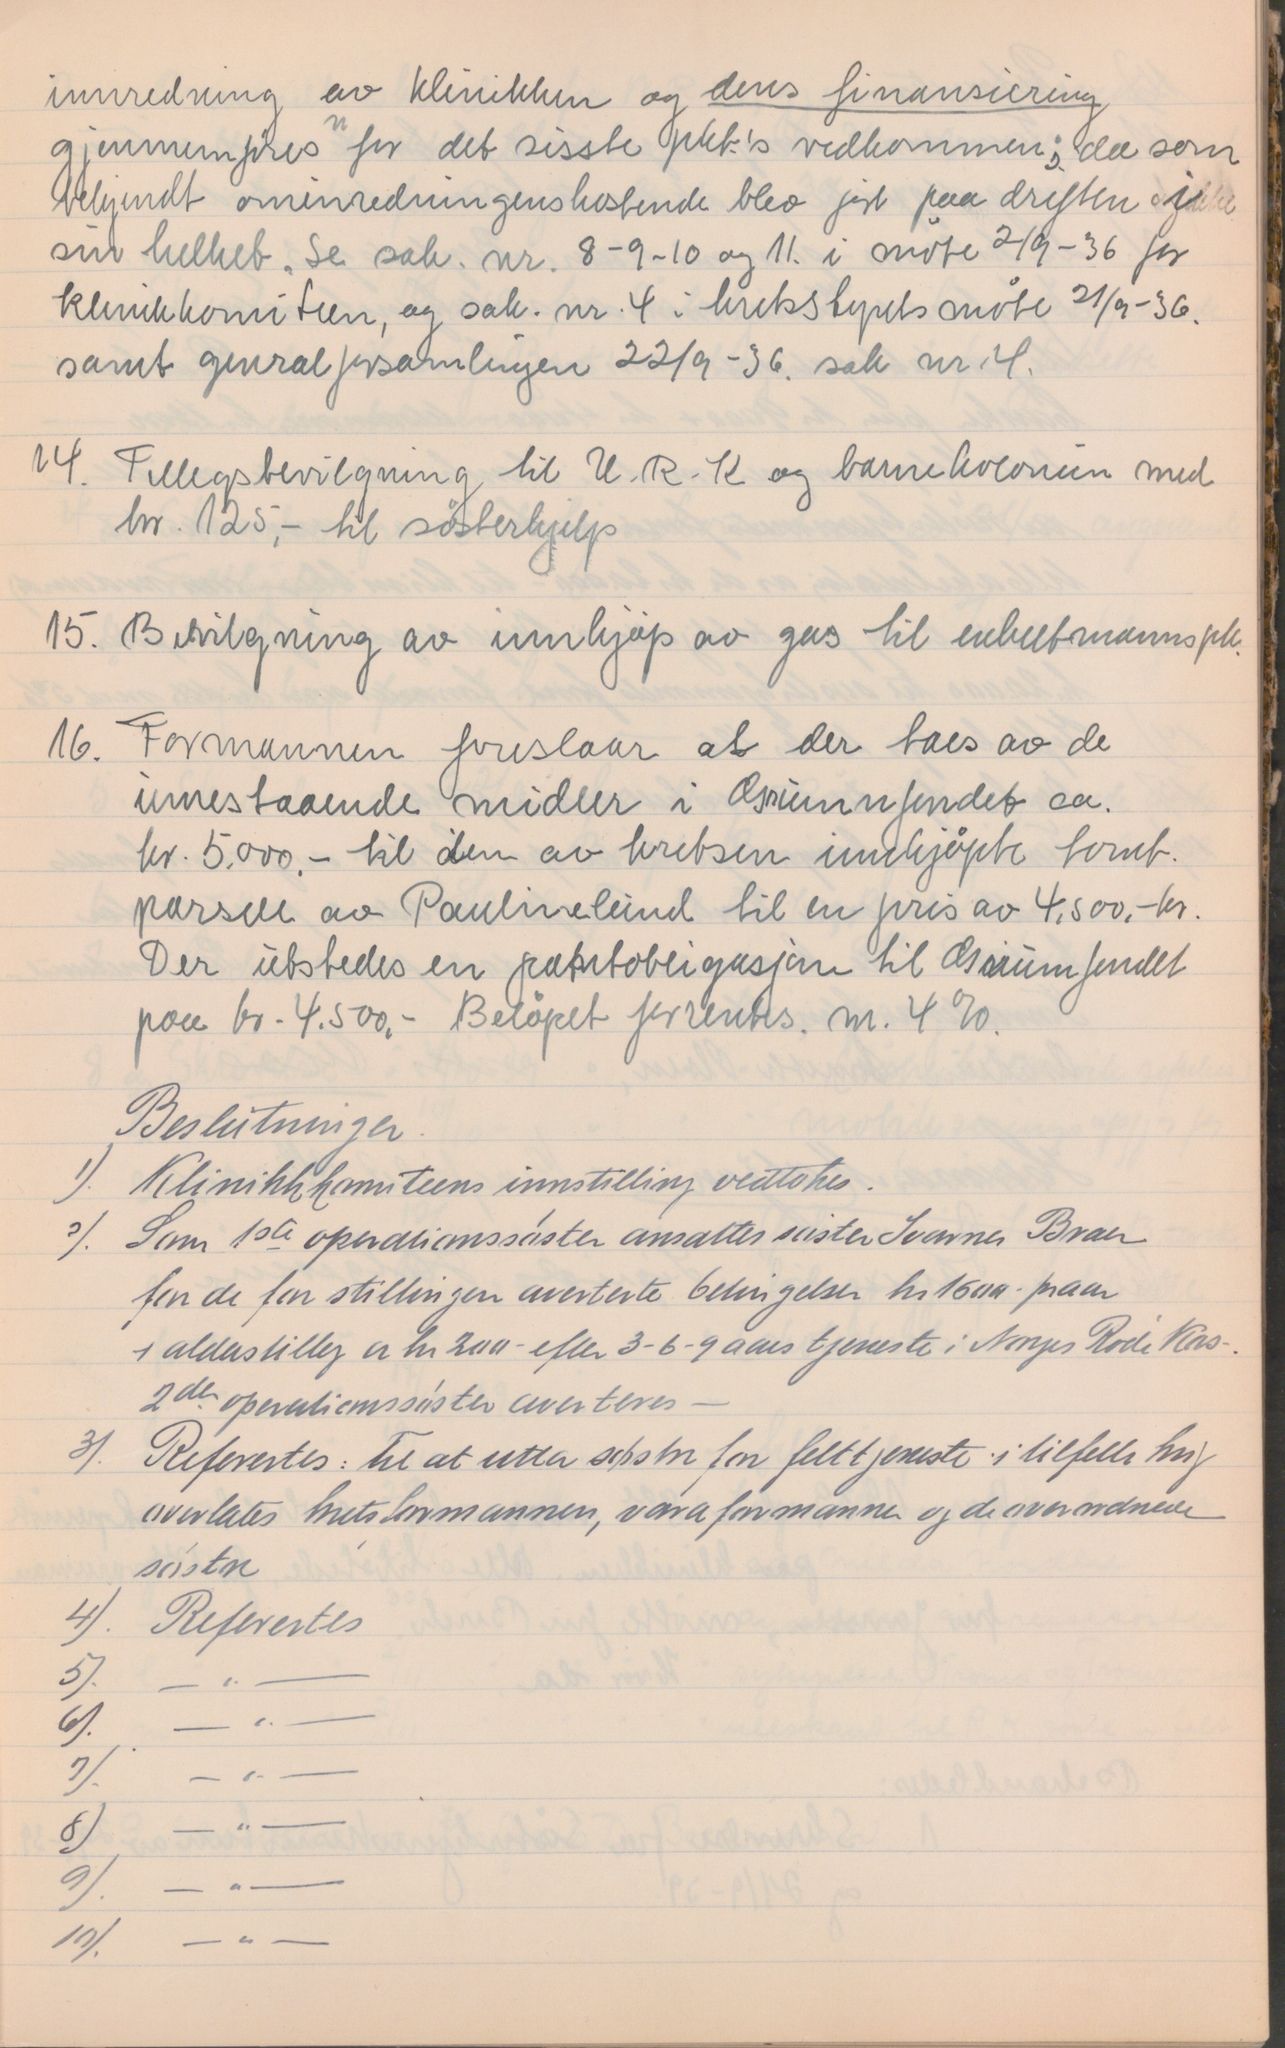 innredning av klinikken og deres finansiering
gjennemføres" for det sisste pkt.'s vedkommen; da som
bekjendt ominredningenskostende blev ført paa driften i
sin helhet. Se sak. nr. 8-9-10 og 11. i møte 2/9-36 for
klinikkomiteen, og sak. nr. 4 i kretsstyrets møte 21/9-36.
samt generalforsamlingen 22/9-36. sak nr. 4.
14. Tillegsbevilgning til U.R.K og barnekolonien med
kr. 125,- til søsterhjelp
15. Bevilgning av innkjøp av gas til enkeltmannspk.
16. Formannen foreslaar at der taes av de
innestaaende midler i Grunnfondet ca.
kr. 5.000,- til den av kretsen innkjøpte tomt.
parsell av Paulinelund til en pris av 4.500,- kr.
Der utstedes en pantobligasjon til Grunnfondet
paa kr. 4.500,- Beløpet forrentes. m. 4%.
Beslutninger.
1). Klinikkkomiteens innstilling vedtokes.
2). Som 1ste operationssøster ansattes søster Braer
for de for stillingen averterte betingelser kr 1600.- paar
+ alderstillegg a kr 200- efter 3-6-9 aars tjeneste i Norges Røde Kors-.
2den operationssøster averteres —
3). Refertes: Til at utta søstre for felttjeneste i tilfelle krig
overlates kretsformannen, varaformannen og de overordnede
søstre
4). Refertes
5). — " —
6). — " —
7). — " —
8) — " —
9). — " —
10). — " —